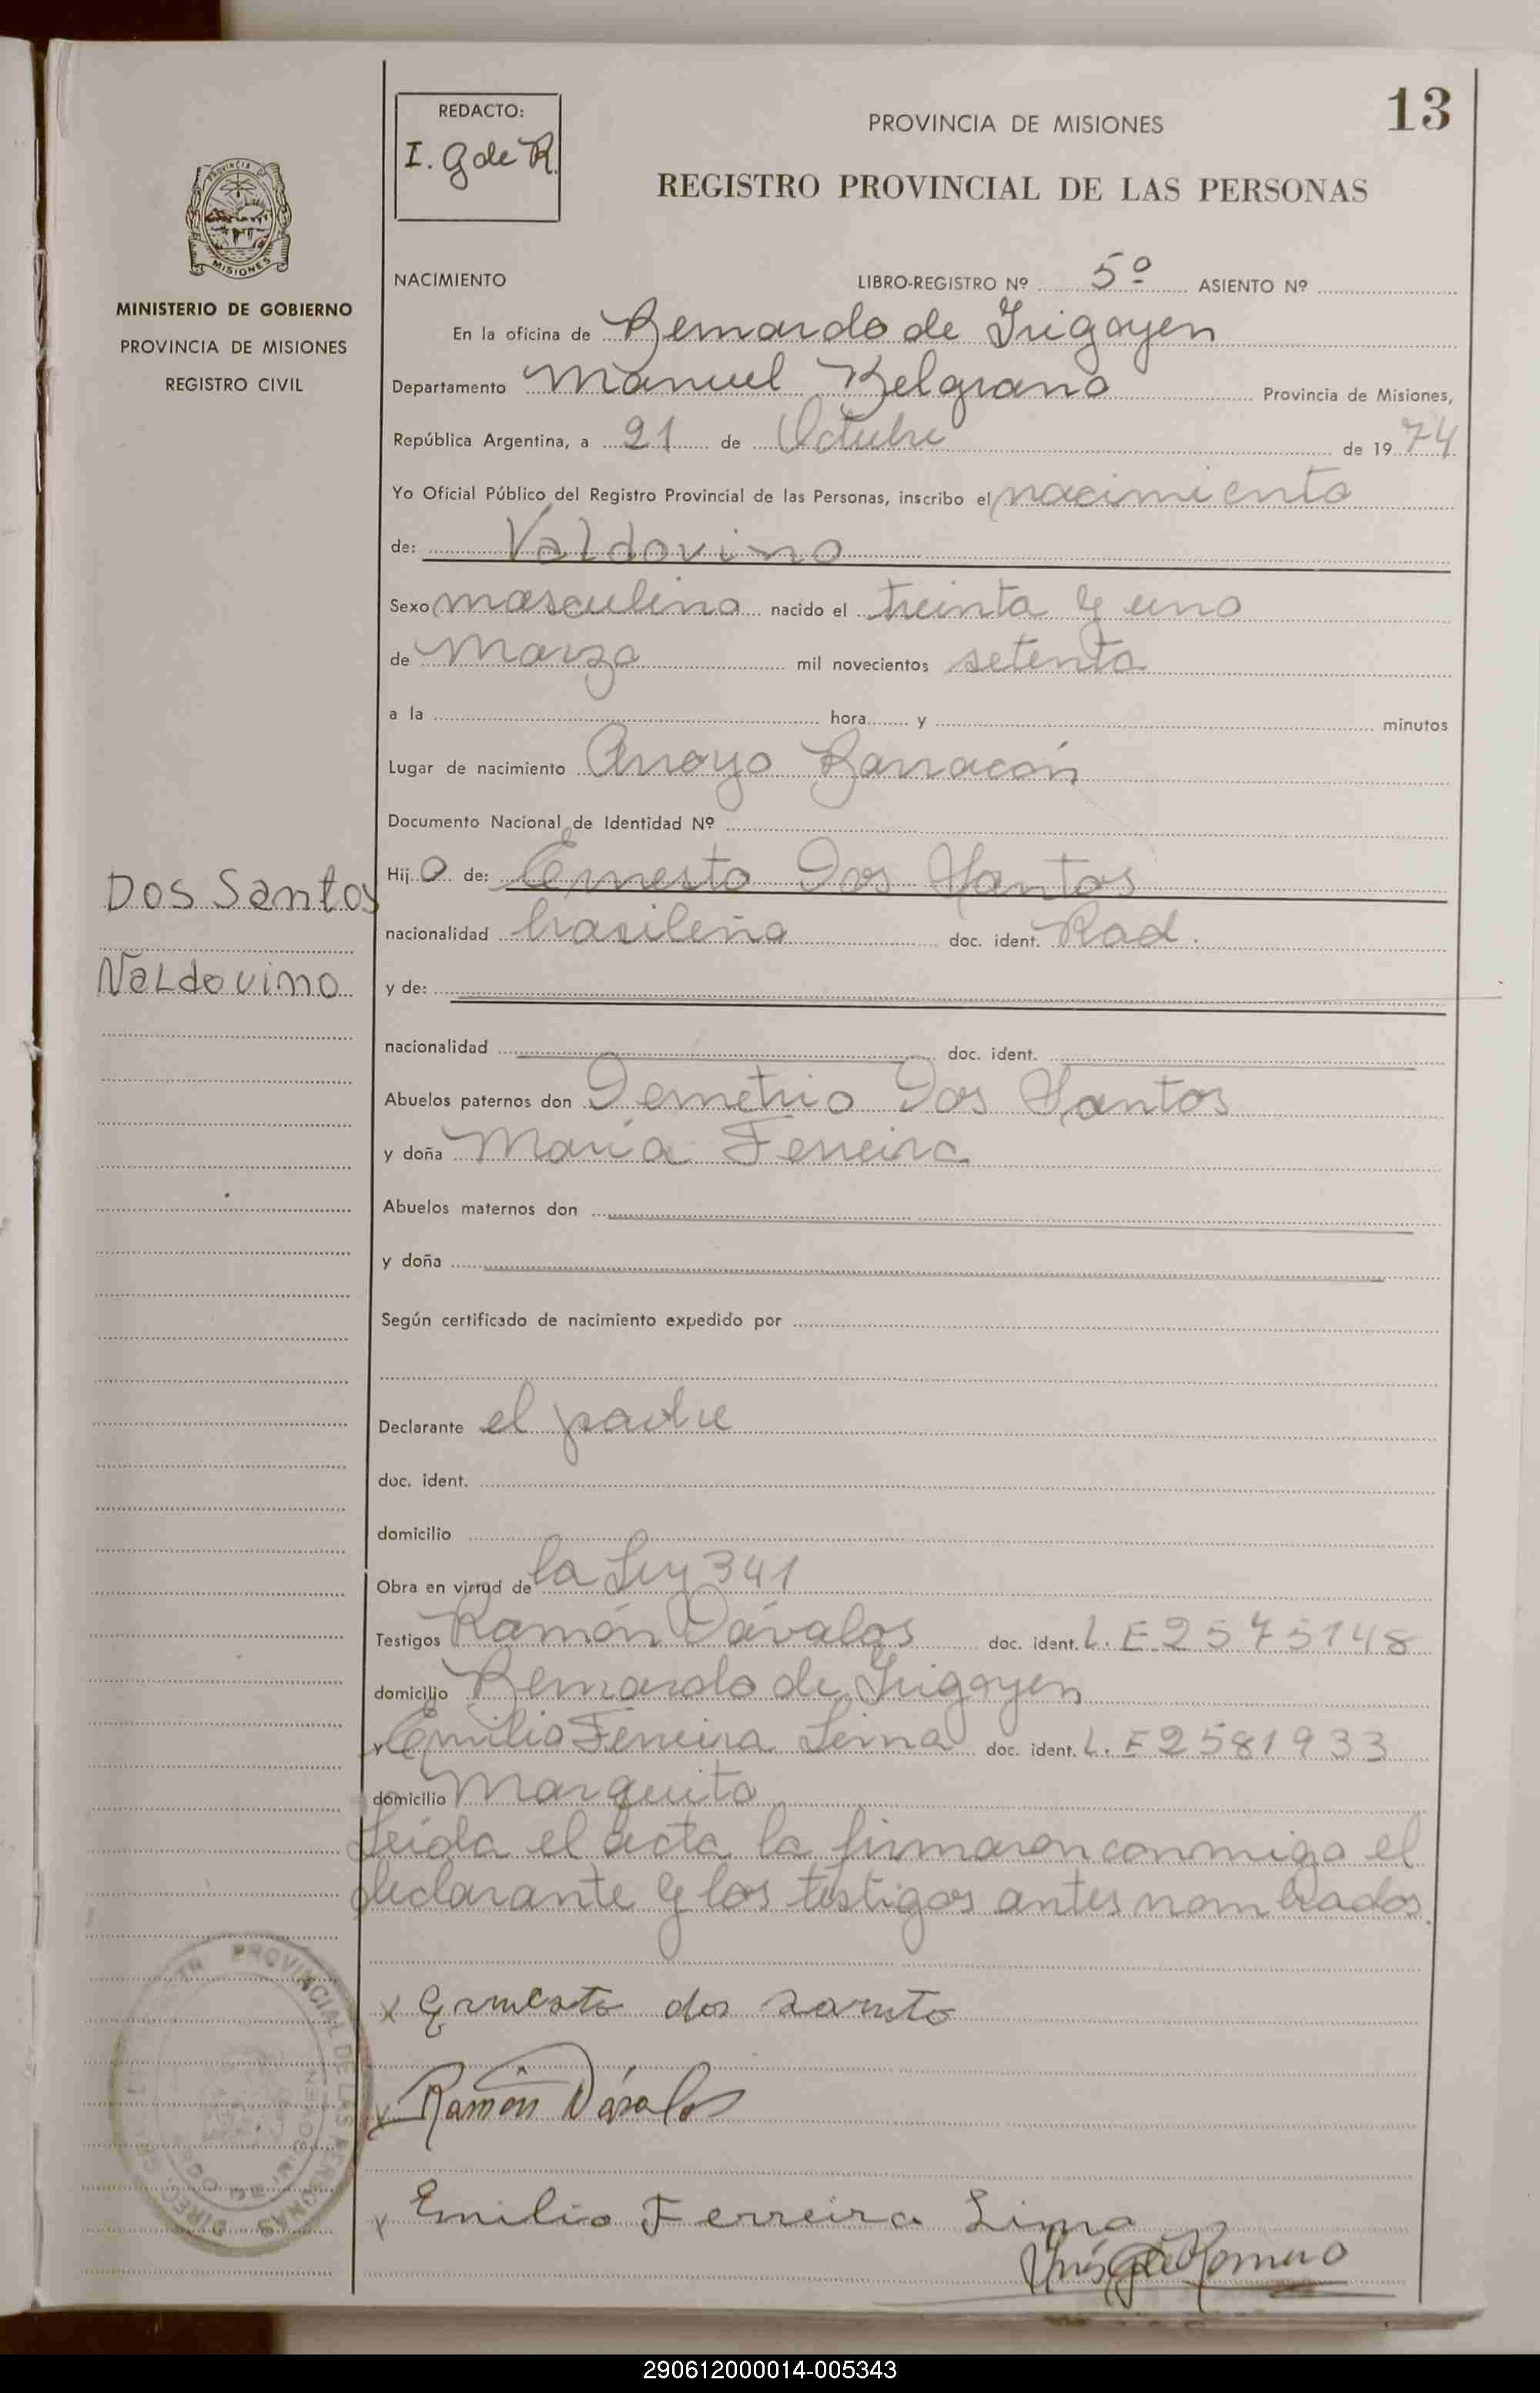 13
REDACTO:
I. G de R.
PROVINCIA DE MISIONES
REGISTRO PROVINCIAL DE LAS PERSONAS
PROVINCIA DE
MISIONES
MINISTERIO DE GOBIERNO
PROVINCIA DE MISIONES
REGISTRO CIVIL
NACIMIENTO LIBRO-REGISTRO Nº 5º ASIENTO Nº
En la oficina de Bernardo de Irigoyen
Departamento Manuel Belgrano Provincia de Misiones,
República Argentina, a 21 de Octubre de 1974
Yo Oficial Público del Registro Provincial de las Personas, inscribo el nacimiento
de: Valdovino
Sexo masculino nacido el treinta y uno
de Marzo mil novecientos setenta
a la hora y minutos
Lugar de nacimiento Arroyo Barracón
Documento Nacional de Identidad Nº
Dos Santos
Valdovino
Hijo de: Ernesto Dos Santos
nacionalidad brasileña doc. ident. Rad.
y de:
nacionalidad doc. ident.
Abuelos paternos don Demetrio Dos Santos
y doña María Ferreira
Abuelos maternos don
y doña
Según certificado de nacimiento expedido por
Declarante el padre
doc. ident.
domicilio
Obra en virtud de la Ley 341
Testigos Ramón Dávalos doc. ident. L. E 2575148
domicilio Bernardo de Irigoyen
y Emilio Ferreira Lima doc. ident. L. E 2581933
domicilio Marquito
Leída el acta la firmaron conmigo el
declarante y los testigos antes nombrados.
x Ernesto dos santo
x Ramón Dávalos
x Emilio Ferreira Lima
Inés G de Romero
PROVINCIAL DE LAS PERSONAS
290612000014-005343